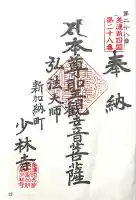 奉納
第二十八番
美濃新四国
第二十八番
本尊聖観音菩薩
弘法大師
新加納町
少林寺